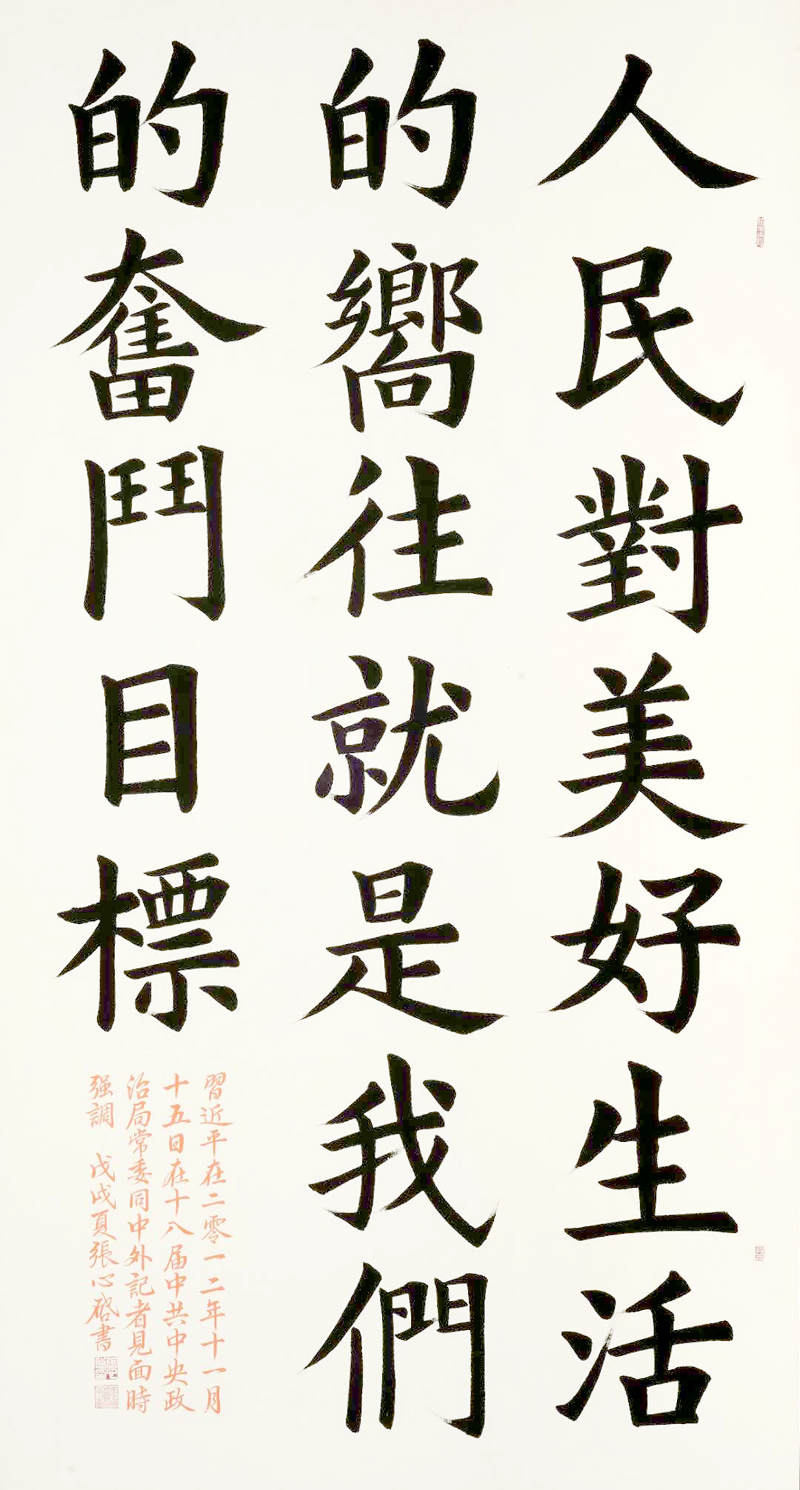 人民對美好生活
的嚮往就是我們
的奮鬥目標
習近平在二零一二年十一月
十五日在十八届中共中央政
治局常委同中外記者見面時
强調 戊戌夏張心啓書